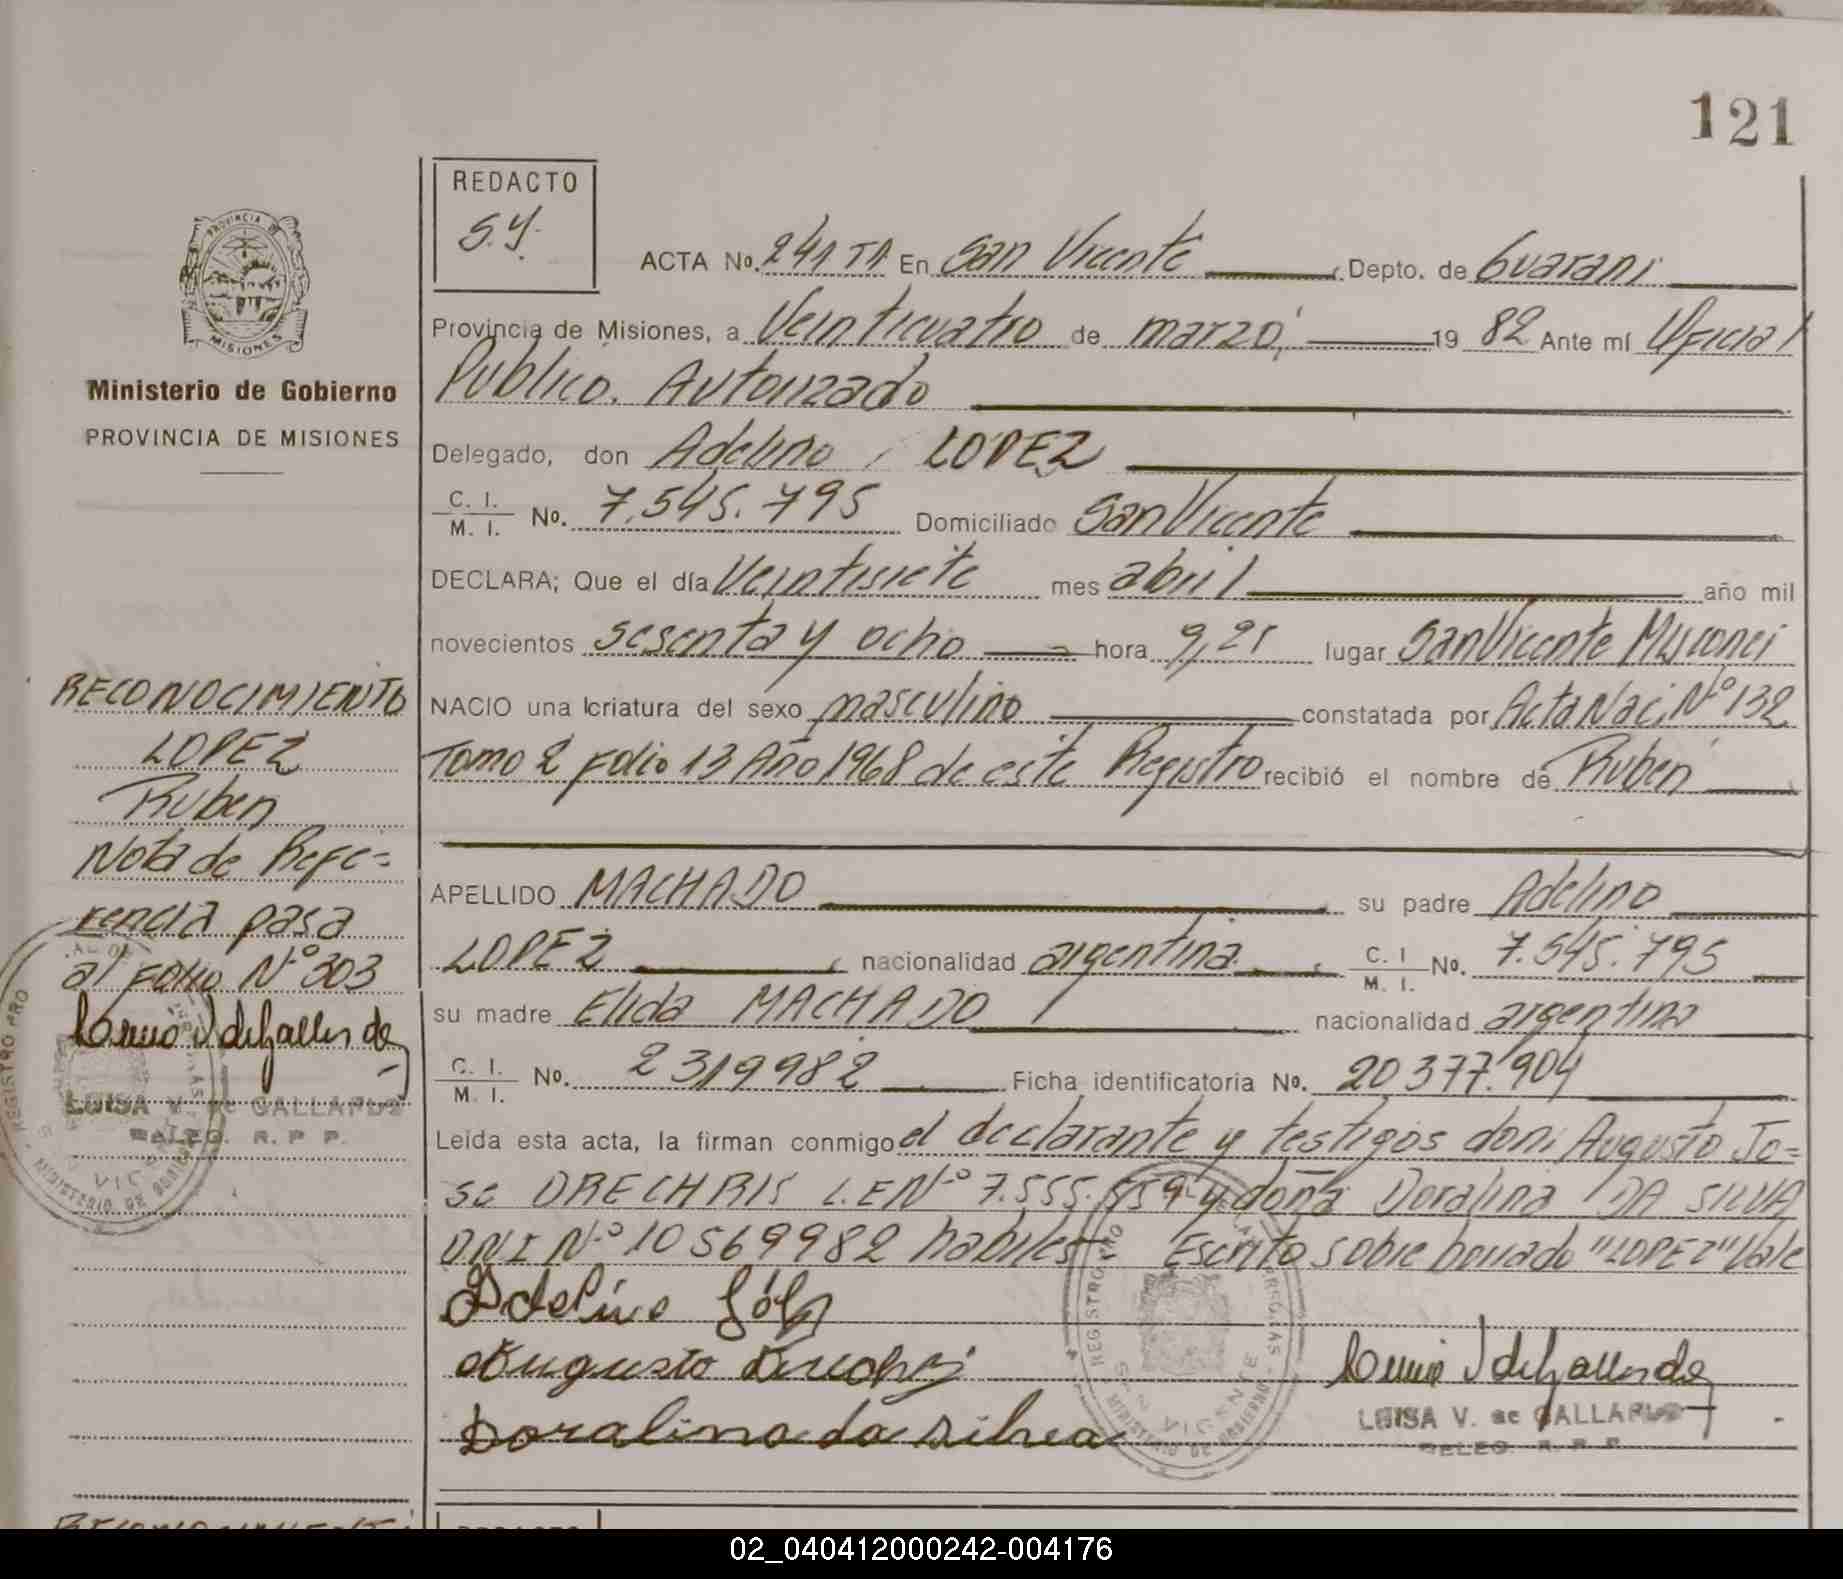 121
REDACTO
S.Y.
ACTA No. 241 T1 En San Vicente Depto. de Guarani
Provincia de Misiones, a Veinticuatro de marzo, 1982 Ante mí Oficial
Publico. Autorizado
Delegado, don Adelino LOPEZ
C. I. / M. I. No. 7.545.795 Domiciliado San Vicente
DECLARA; Que el día Veintisiete mes abril año mil
novecientos sesenta y ocho hora 9,25 lugar San Vicente Misiones
NACIO una criatura del sexo masculino constatada por Acta Nac. Nº 132
Tomo 2 Folio 13 Año 1968 de este Registro recibió el nombre de Ruben
APELLIDO MACHADO su padre Adelino
LOPEZ nacionalidad argentina C. I / M. I. No. 7.545.795
su madre Elida MACHADO nacionalidad argentina
C. I. / M. I. No. 2319982 Ficha identificatoria No. 20377.904
Leída esta acta, la firman conmigo el declarante y testigos don: Augusto Jo=
se DRECHRIS L.E Nº 7.555.559 y doña Doralina DA SILVA
D.N.I Nº 10569982 habiles Escrito sobre borrado "LOPEZ" Vale
Adelino
Augusto
Doralina da Silvea
LUISA V. de GALLARDO
DELEG. R. P. P.
PROVINCIA DE
MISIONES
Ministerio de Gobierno
PROVINCIA DE MISIONES
RECONOCIMIENTO
LOPEZ
Ruben
Nota de Refe=
rencia pasa
al Folio Nº 303
LUISA V. de GALLARDO
DELEG. R. P. P.
REGISTRO PRO
MINISTERIO DE GOBIERNO
REGISTRO PRO
SAN VICENTE
MINISTERIO DE GOBIERNO
02_040412000242-004176